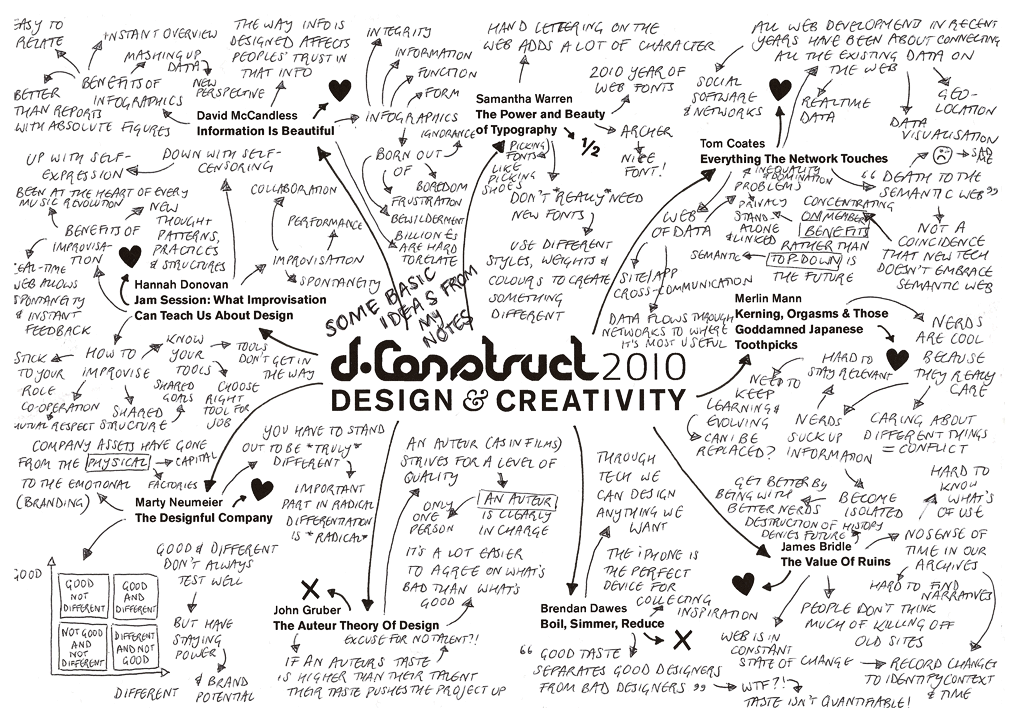 d.Construct 2010
DESIGN & CREATIVITY
SOME BASIC
IDEAS FROM
MY
NOTES
David McCandless
Information Is Beautiful
EASY TO
RELATE
INSTANT OVERVIEW
MASHING UP
DATA
NEW
PERSPECTIVE
BENEFITS OF
INFOGRAPHICS
BETTER
THAN REPORTS
WITH ABSOLUTE FIGURES
THE WAY INFO IS
DESIGNED AFFECTS
PEOPLES' TRUST IN
THAT INFO
INTEGRITY
INFORMATION
FUNCTION
FORM
INFOGRAPHICS
IGNORANCE
BORN OUT
OF
BOREDOM
FRUSTRATION
BEWILDERMENT
BILLIONS
ARE HARD
TO RELATE
Samantha Warren
The Power and Beauty
of Typography
HAND LETTERING ON THE
WEB ADDS A LOT OF CHARACTER
2010 YEAR OF
WEB FONTS
ARCHER
NICE
FONT!
1/2
PICKING
FONTS
LIKE
PICKING
SHOES
DON'T *REALLY* NEED
NEW FONTS
USE DIFFERENT
STYLES, WEIGHTS &
COLOURS TO CREATE
SOMETHING
DIFFERENT
Tom Coates
Everything The Network Touches
ALL WEB DEVELOPMENT IN RECENT
YEARS HAVE BEEN ABOUT CONNECTING
ALL THE EXISTING DATA ON
THE WEB
SOCIAL
SOFTWARE
& NETWORKS
REALTIME
DATA
GEO-
LOCATION
DATA
VISUALISATION
SAD
ME
"DEATH TO THE
SEMANTIC WEB"
NOT A
COINCIDENCE
THAT NEW TECH
DOESN'T EMBRACE
SEMANTIC WEB
INEQUALITY
DOMINATION
PROBLEMS
PRIVACY
STAND
ALONE
& LINKED
SEMANTIC
WEB
OF DATA
CONCENTRATING
ON MEMBER
BENEFITS
RATHER THAN
TOP-DOWN IS
THE FUTURE
SITE/APP
CROSS-COMMUNICATION
DATA FLOWS THROUGH
NETWORKS TO WHERE
IT'S MOST USEFUL
Hannah Donovan
Jam Session: What Improvisation
Can Teach Us About Design
UP WITH SELF-
EXPRESSION
DOWN WITH SELF-
CENSORING
BEEN AT THE HEART OF EVERY
MUSIC REVOLUTION
NEW
THOUGHT
PATTERNS,
PRACTICES
& STRUCTURES
BENEFITS OF
IMPROVISA-
TION
WEB ALLOWS
SPONTANEITY
& INSTANT
FEEDBACK
COLLABORATION
PERFORMANCE
IMPROVISATION
SPONTANEITY
HOW TO
IMPROVISE
STICK
TO YOUR
ROLE
KNOW
YOUR
TOOLS
TOOLS
DON'T GET IN
THE WAY
CHOOSE
RIGHT
TOOL FOR
JOB
SHARED
GOALS
SHARED
STRUCTURE
CO-OPERATION
MUTUAL RESPECT
Merlin Mann
Kerning, Orgasms & Those
Goddamned Japanese
Toothpicks
NERDS
ARE COOL
BECAUSE
THEY REALLY
CARE
HARD TO
STAY RELEVANT
NEED TO
KEEP
LEARNING &
EVOLVING
CAN I BE
REPLACED?
NERDS
SUCK UP
INFORMATION
CARING ABOUT
DIFFERENT THINGS
= CONFLICT
GET BETTER BY
BEING WITH
BETTER NERDS
BECOME
ISOLATED
Marty Neumeier
The Designful Company
COMPANY ASSETS HAVE GONE
FROM THE PHYSICAL
TO THE EMOTIONAL
(BRANDING)
CAPITAL
FACTORIES
YOU HAVE TO STAND
OUT TO BE *TRULY*
DIFFERENT
IMPORTANT
PART IN RADICAL
DIFFERENTIATION
IS *RADICAL*
GOOD & DIFFERENT
DON'T ALWAYS
TEST WELL
BUT HAVE
STAYING
POWER
& BRAND
POTENTIAL
GOOD
GOOD
NOT
DIFFERENT
GOOD
AND
DIFFERENT
NOT GOOD
AND
NOT
DIFFERENT
DIFFERENT
AND NOT
GOOD
DIFFERENT
John Gruber
The Auteur Theory Of Design
AN AUTEUR (AS IN FILMS)
STRIVES FOR A LEVEL OF
QUALITY
ONLY
ONE
PERSON
AN AUTEUR
IS CLEARLY
IN CHARGE
IT'S A LOT EASIER
TO AGREE ON WHAT'S
BAD THAN WHAT'S
GOOD
EXCUSE FOR NO TALENT?!
IF AN AUTEUR'S TASTE
IS HIGHER THAN THEIR TALENT
THEIR TASTE PUSHES THE PROJECT UP
Brendan Dawes
Boil, Simmer, Reduce
THROUGH
TECH WE
CAN DESIGN
ANYTHING WE
WANT
THE iPHONE IS
THE PERFECT
DEVICE FOR
COLLECTING
INSPIRATION
"GOOD TASTE
SEPARATES GOOD DESIGNERS
FROM BAD DESIGNERS"
WTF?!
TASTE ISN'T QUANTIFIABLE!
James Bridle
The Value Of Ruins
DESTRUCTION OF HISTORY
DENIES FUTURE
HARD TO
KNOW
WHAT'S
OF USE
NO SENSE OF
TIME IN OUR
ARCHIVES
HARD TO FIND
NARRATIVES
PEOPLE DON'T THINK
MUCH OF KILLING OFF
OLD SITES
WEB IS IN
CONSTANT
STATE OF CHANGE
RECORD CHANGES
TO IDENTIFY CONTEXT
& TIME